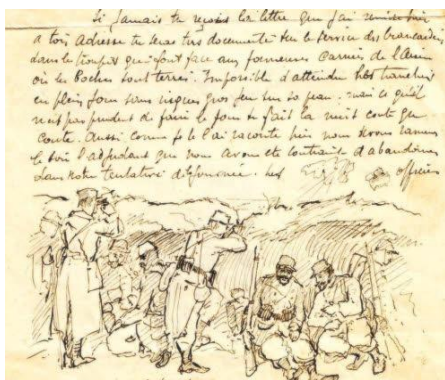 Si jamais tu reçois la lettre que j'ai
a ton adresse tu seras très documenté sur le service des brancardiers
dans le qui font face aux fameuses Carrières de l'Aisne
où les Boches sont terrés. Impossible d'attendre
en plein jour sans risquer gros jeu sur sa peau. mais ce qu'il
n'est pas prudent de faire le jour se fait la nuit coute que
coute. Aussi comme je te l'ai raconté nous
le soir l'adjudant que nous avons été contraint d'abandonner
dans notre tentative Les officiers